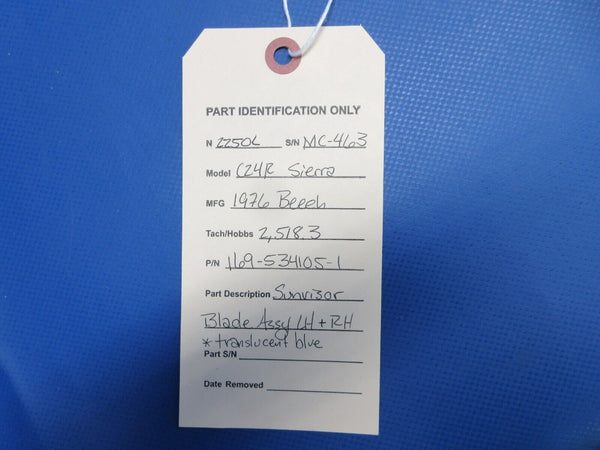 PART IDENTIFICATION ONLY
N 2250L S/N MC-463
Model C24R Sierra
MFG 1976 Beech
Tach/Hobbs 2,518.3
P/N 169-534105-1
Part Description Sunvisor
Blade Assy LH + RH
* translucent blue
Part S/N
Date Removed